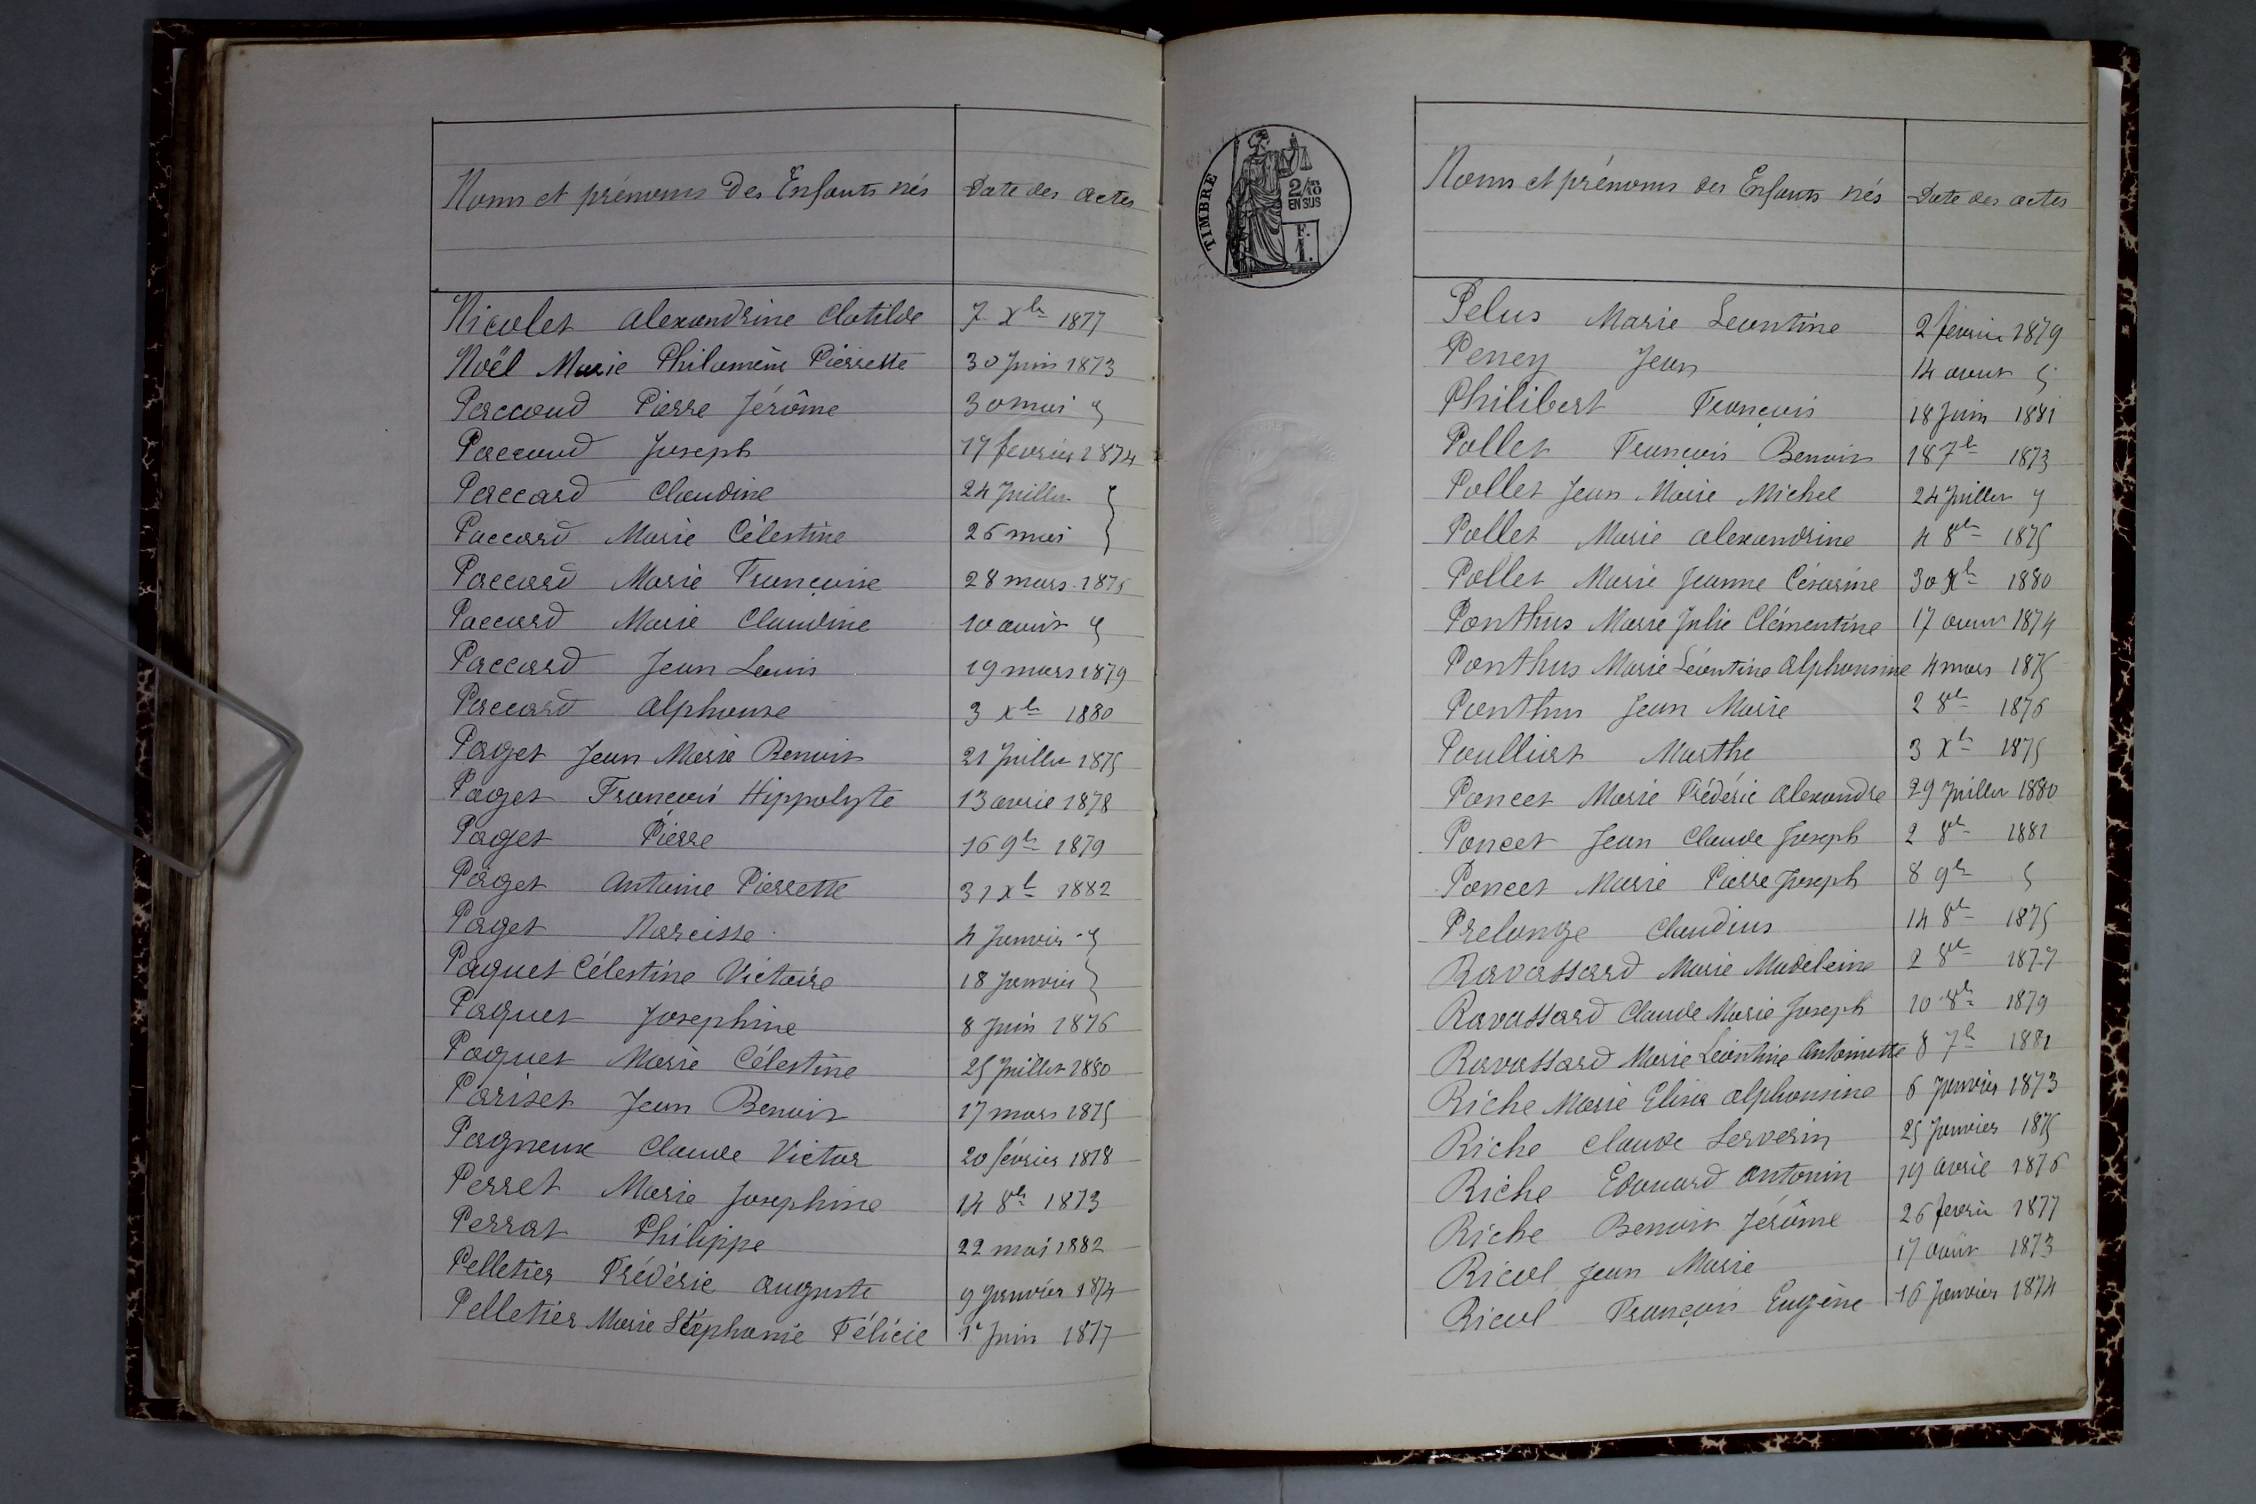 Noms et prénoms des Enfants nés Date des actes
Nicolet Alexandrine Clotilde 7 Xbre 1877
Noël Marie Philomène Pierrette 30 Juin 1873
Paccoud Pierre Jérôme 30 mai "
Paccoud Joseph 17 février 1874
Paccard Claudine 24 Juillet "
Paccard Marie Célestine 26 mai "
Paccard Marie Françoise 28 mars 1875
Paccard Marie Claudine 10 août "
Paccard Jean Louis 19 mars 1879
Paccard Alphonse 3 Xbre 1880
Paget Jean Marie Benoit 21 Juillet 1875
Paget François Hippolyte 13 avril 1878
Paget Pierre 16 9bre 1879
Paget Antoine Pierrette 31 Xbre 1882
Paget Narcisse 4 Janvier "
Paquet Célestine Victoire 18 Janvier "
Paquet Josephine 8 Juin 1876
Paquet Marie Célestine 25 Juillet 1880
Pariset Jean Benoit 17 mars 1875
Pagneux Claude Victor 20 février 1878
Perret Marie Josephine 14 8bre 1873
Perrat Philippe 22 mai 1882
Pelletier Frédéric Auguste 9 Janvier 1874
Pelletier Marie Stéphanie Félicie 1er Juin 1877
TIMBRE
2/10
EN SUS
F.
1.
Noms et prénoms des Enfants nés Date des actes
Pelus Marie Leontine 2 février 1879
Peney Jean 14 aout "
Philibert François 18 Juin 1881
Pollet François Benoit 18 7bre 1873
Pollet Jean Marie Michel 24 Juillet "
Pollet Marie Alexandrine 4 8bre 1875
Pollet Marie Jeanne Césarine 30 Xbre 1880
Ponthus Marie Julie Clémentine 17 aout 1874
Ponthus Marie Léontine Alphonsine 4 mars 1875
Ponthus Jean Marie 2 8bre 1876
Poulliat Marthe 3 Xbre 1875
Poncet Marie Frédéric Alexandre 29 Juillet 1880
Poncet Jean Claude Joseph 2 8bre 1881
Poncet Marie Pierre Joseph 8 9bre "
Prelonge Claudius 14 8bre 1875
Ravassard Marie Madeleine 2 8bre 1877
Ravassard Claude Marie Joseph 10 8bre 1879
Ravassard Marie Léontine Antoinette 8 7bre 1881
Riche Marie Elisa Alphonsine 6 Janvier 1873
Riche Claude Serverin 25 Janvier 1875
Riche Edouard Antonin 19 avril 1876
Riche Benoit Jérôme 26 fevrier 1877
Ricol Jean Marie 17 août 1873
Ricol François Eugène 16 Janvier 1874